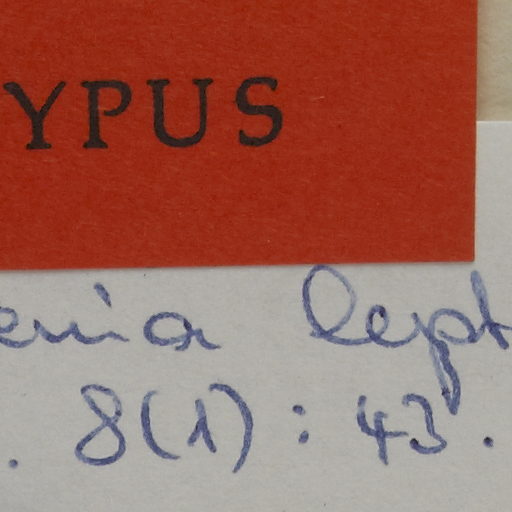 YPUS
enia lept
. 8(1): 43.